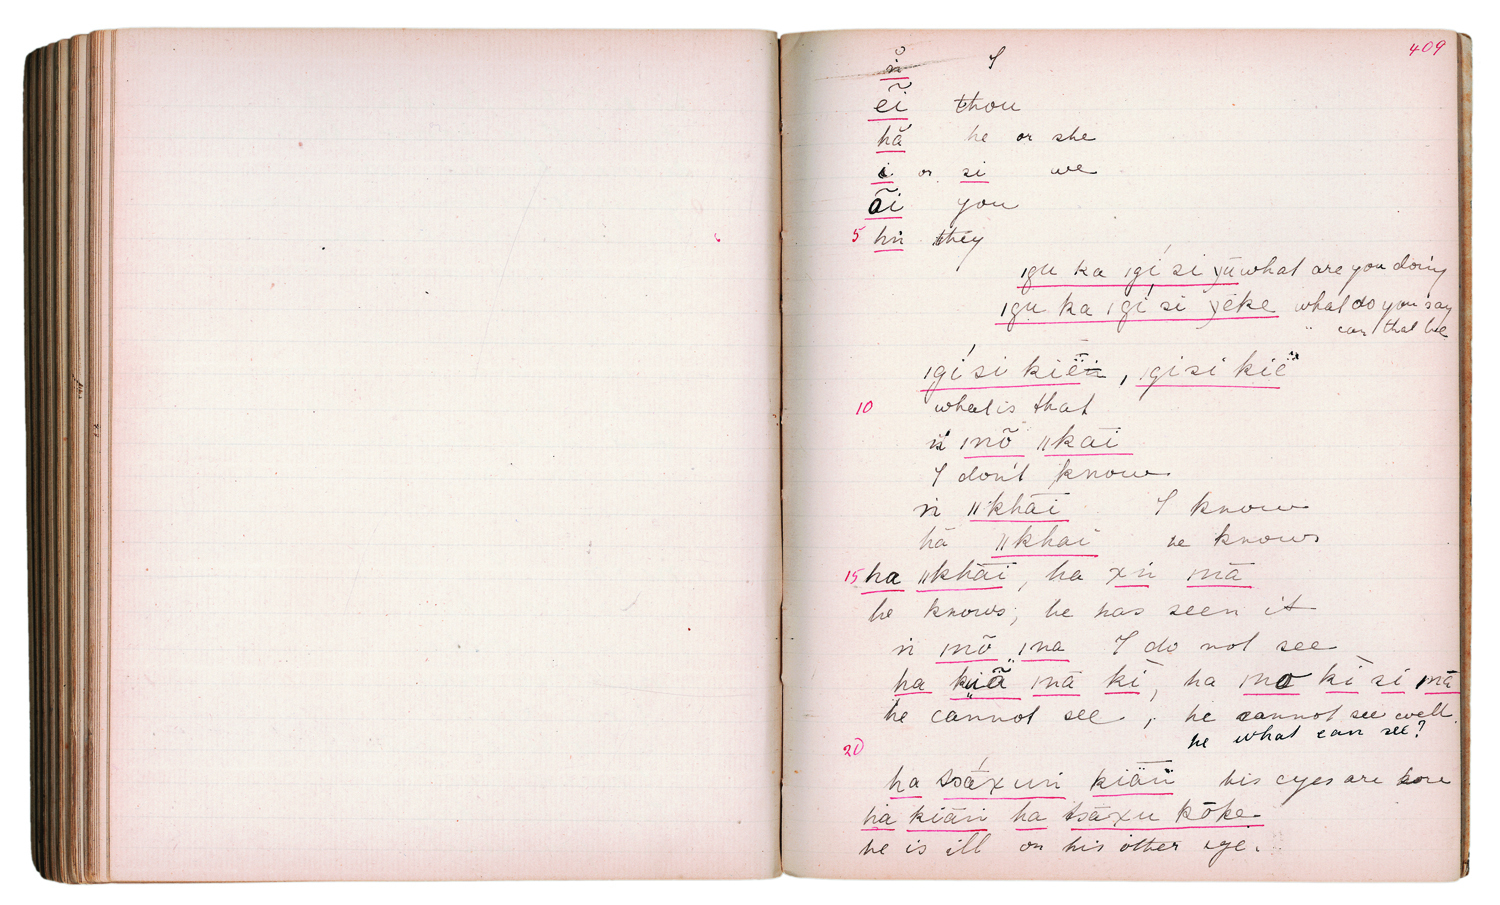 409
n̊ I
ẽi thou
hă he or she
i or si we
õi you
5 hn̊ they
ǀgu ka ǀgí si yū what are you doing
ǀgu ka ǀgí si yēke what do you say
" can that be
ǀgí si kië̄n̈, ǀgisi kië̈
10 what is that
n̊ ǀnõ ǁkāī
I don't know
n̊ ǁkhāī I know
hā ǁkhai he knows
15 ha ǁkhāī, ha xn̊ mā
he knows, he has seen it
n̊ ǀnõ ǀna I do not see
ha kiã̈ ǀnā kī, ha ǀno kī sī ǀnā
he cannot see, he cannot see well.
he what can see?
20
ha tsáxun kiān̄ his eyes are sore
ha kiān ha tsāxu kōke
he is ill on his other eye.